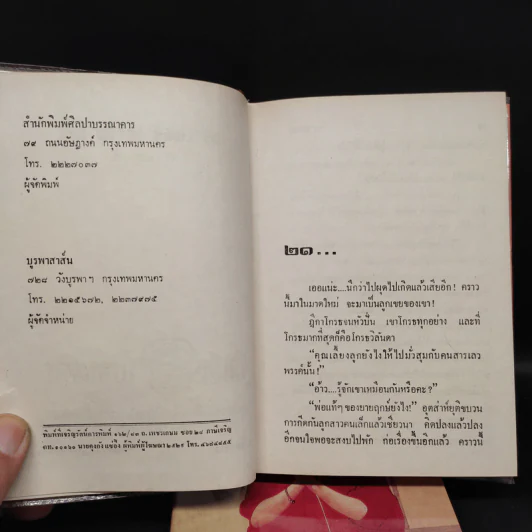 สำนักพิมพ์ศิลปาบรรณาคาร
๗๙ ถนนอัษฎางค์ กรุงเทพมหานคร
โทร. ๒๒๒๗๐๓๗
ผู้จัดพิมพ์
บูรพาสาส์น
๗๒๘ วังบูรพา ฯ กรุงเทพมหานคร
โทร. ๒๒๑๕๖๗๒, ๒๒๓๗๙๗๕
ผู้จัดจำหน่าย
พิมพ์ที่เจริญรัตน์การพิมพ์ ถ. เทอดไท ซอย ๒๘ ภาษีเจริญ
กท. ๑๐๑๖๐ ผู้พิมพ์ผู้โฆษณา ๒๕๒๕ โทร.
๒๑...
เออแน่ะ....นึกว่าไปผุดไปเกิดแล้วเสียอีก! คราว
นี้มาในมาดใหม่ จะมาเป็นลูกเขยของเขา!
ฎีกาโกรธจนหัวปั่น เขาโกรธทุกอย่าง และที่
โกรธมากที่สุดก็คือโกรธวิลันดา
“คุณเลี้ยงลูกยังไงให้ไปมั่วสุมกับคนสารเลว
พรรค์นั้น!”
“อ้าว....รู้จักเขาเหมือนกันหรือคะ?”
“พ่อแท้ๆ ของยายฤกษ์ยังไง!” อุตส่าห์ยุติขบวน
การกีดกันลูกสาวคนเล็กแล้วเชียวนา คิดปลงแล้วปลง
อีกจนใจพอจะสงบไปพัก ก่อเรื่องขึ้นอีกแล้ว คราวนี้